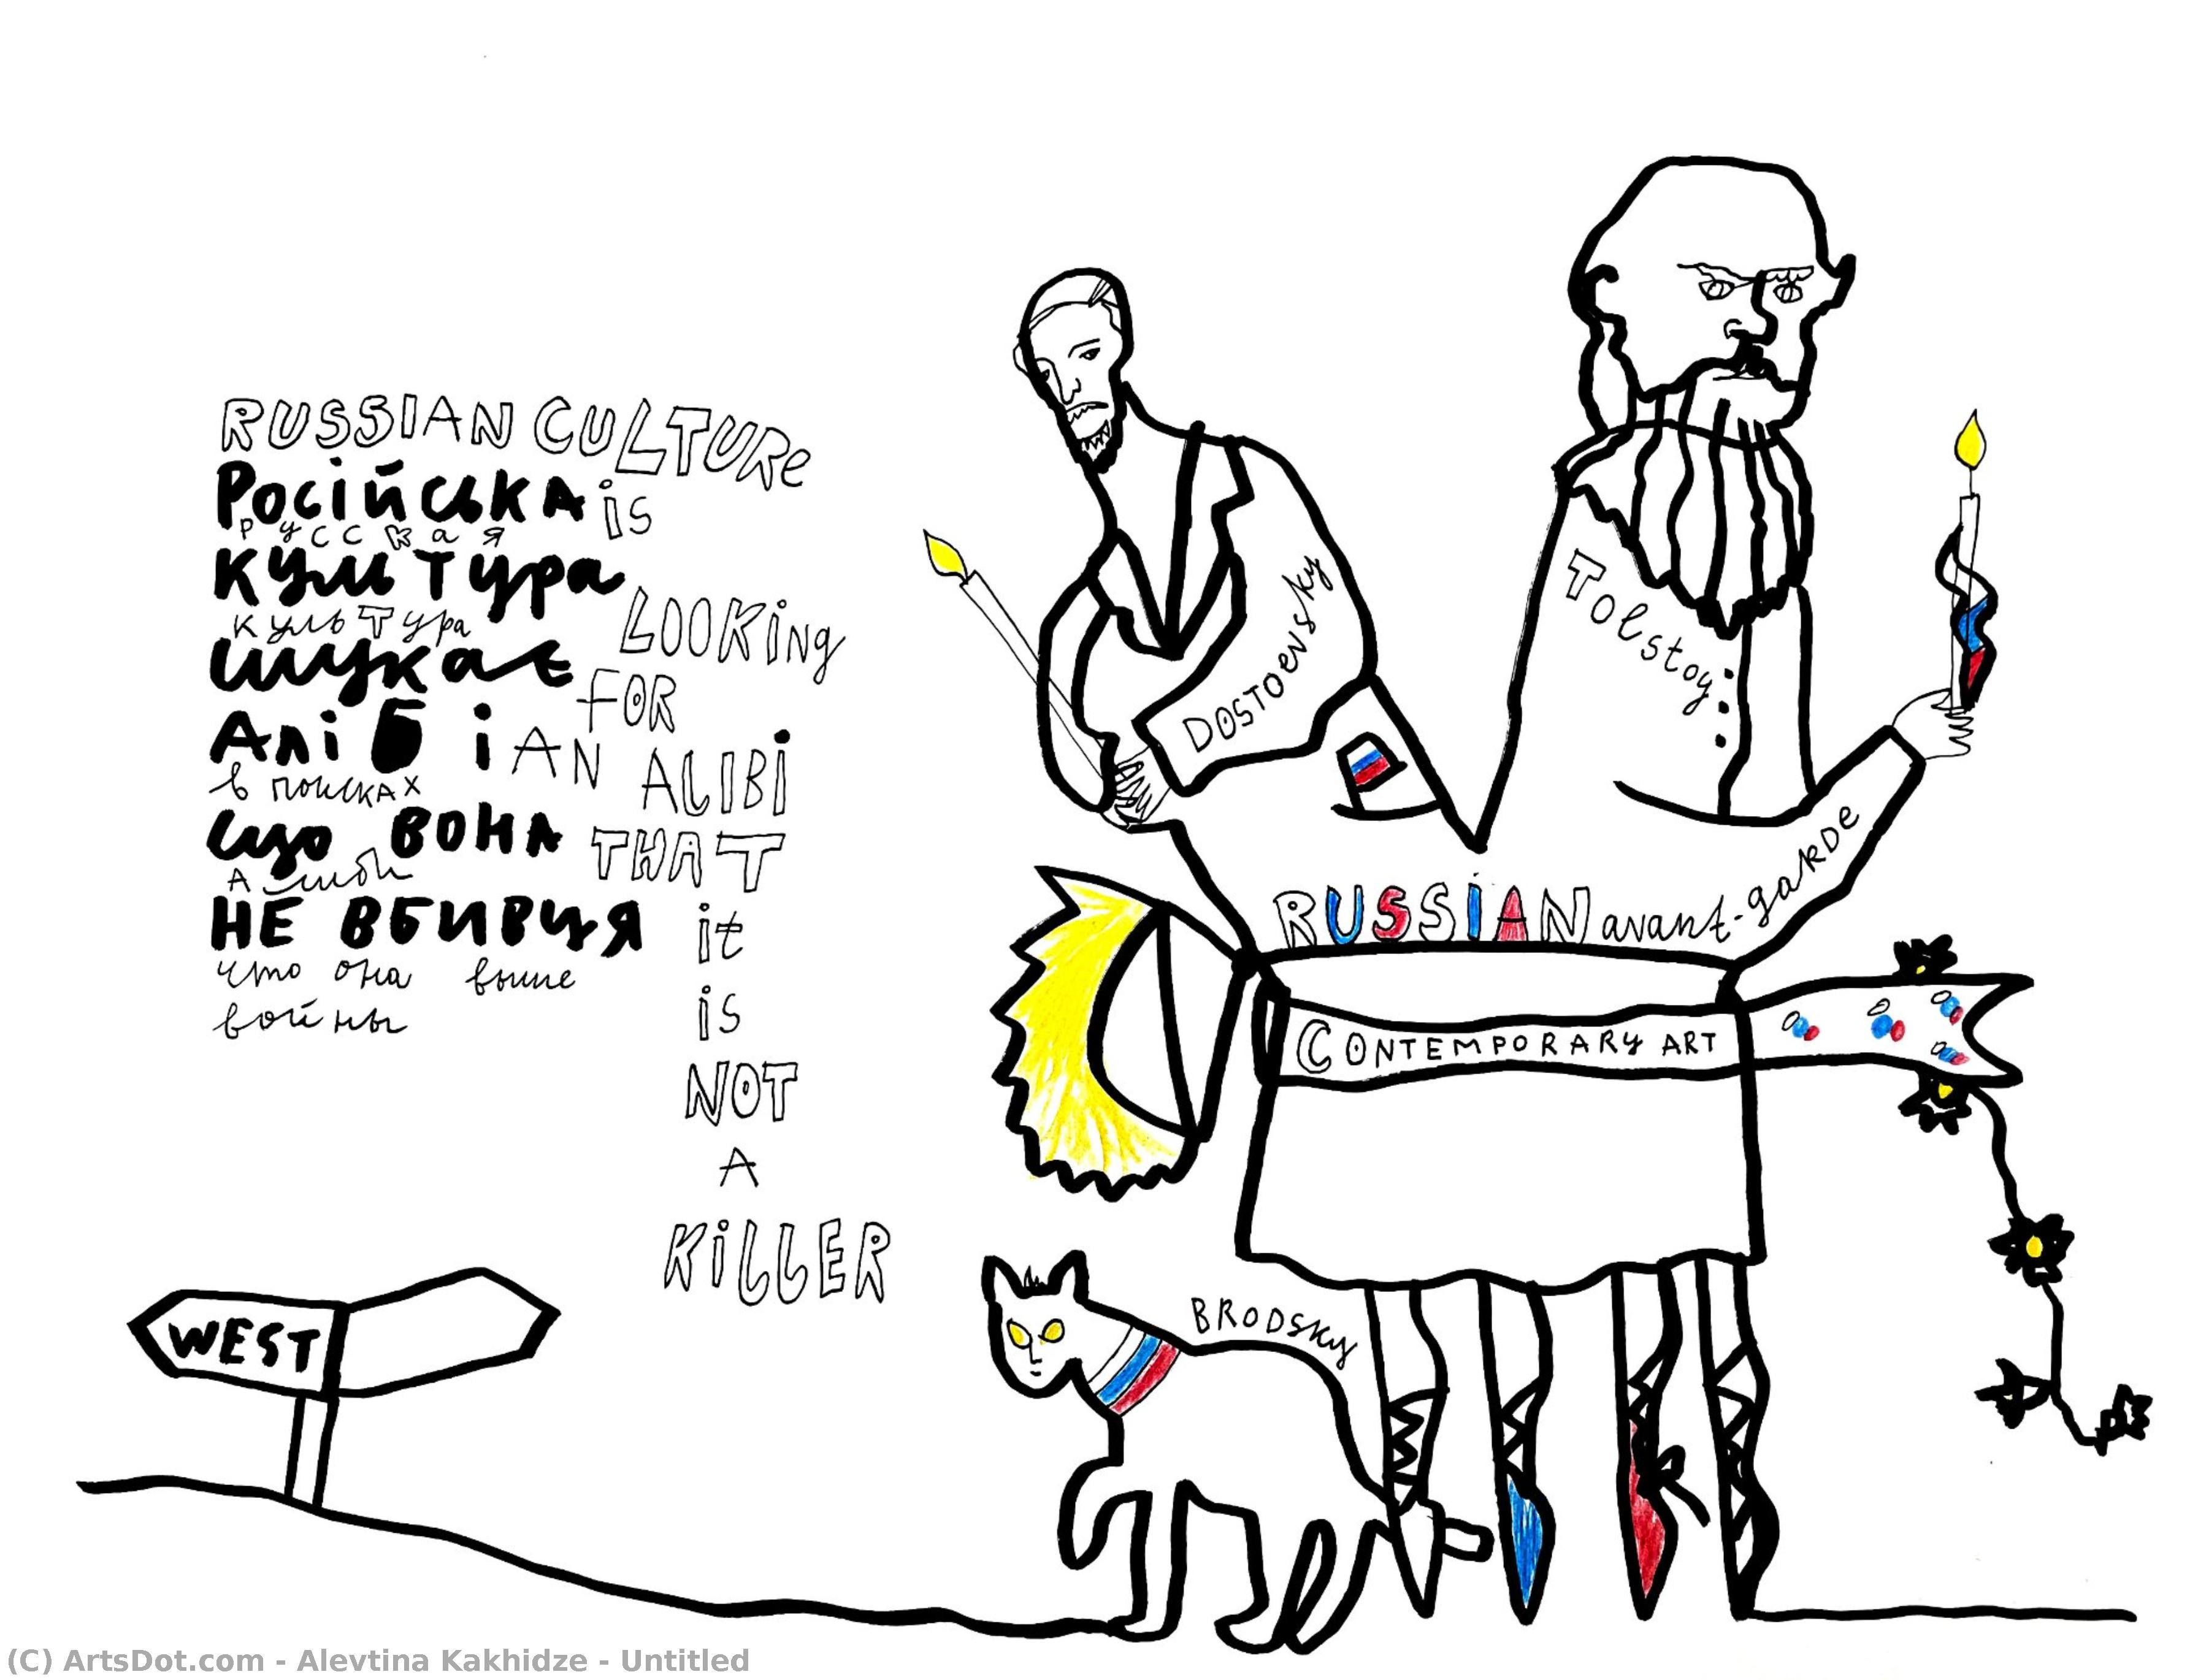 RUSSIAN CULTURE
Російська is
русская
культура
культура
LOOKING
шукає
FOR
Алібі
AN ALIBI
в поисках
що вона
THAT
Алиби
не вбивця
it
что она выше
войны
is
NOT
A
KILLER
WEST
DOSTOEVSKY
TOLSTOY
RUSSIAN avant-garde
CONTEMPORARY ART
BRODSKY
(C) ArtsDot.com - Alevtina Kakhidze - Untitled